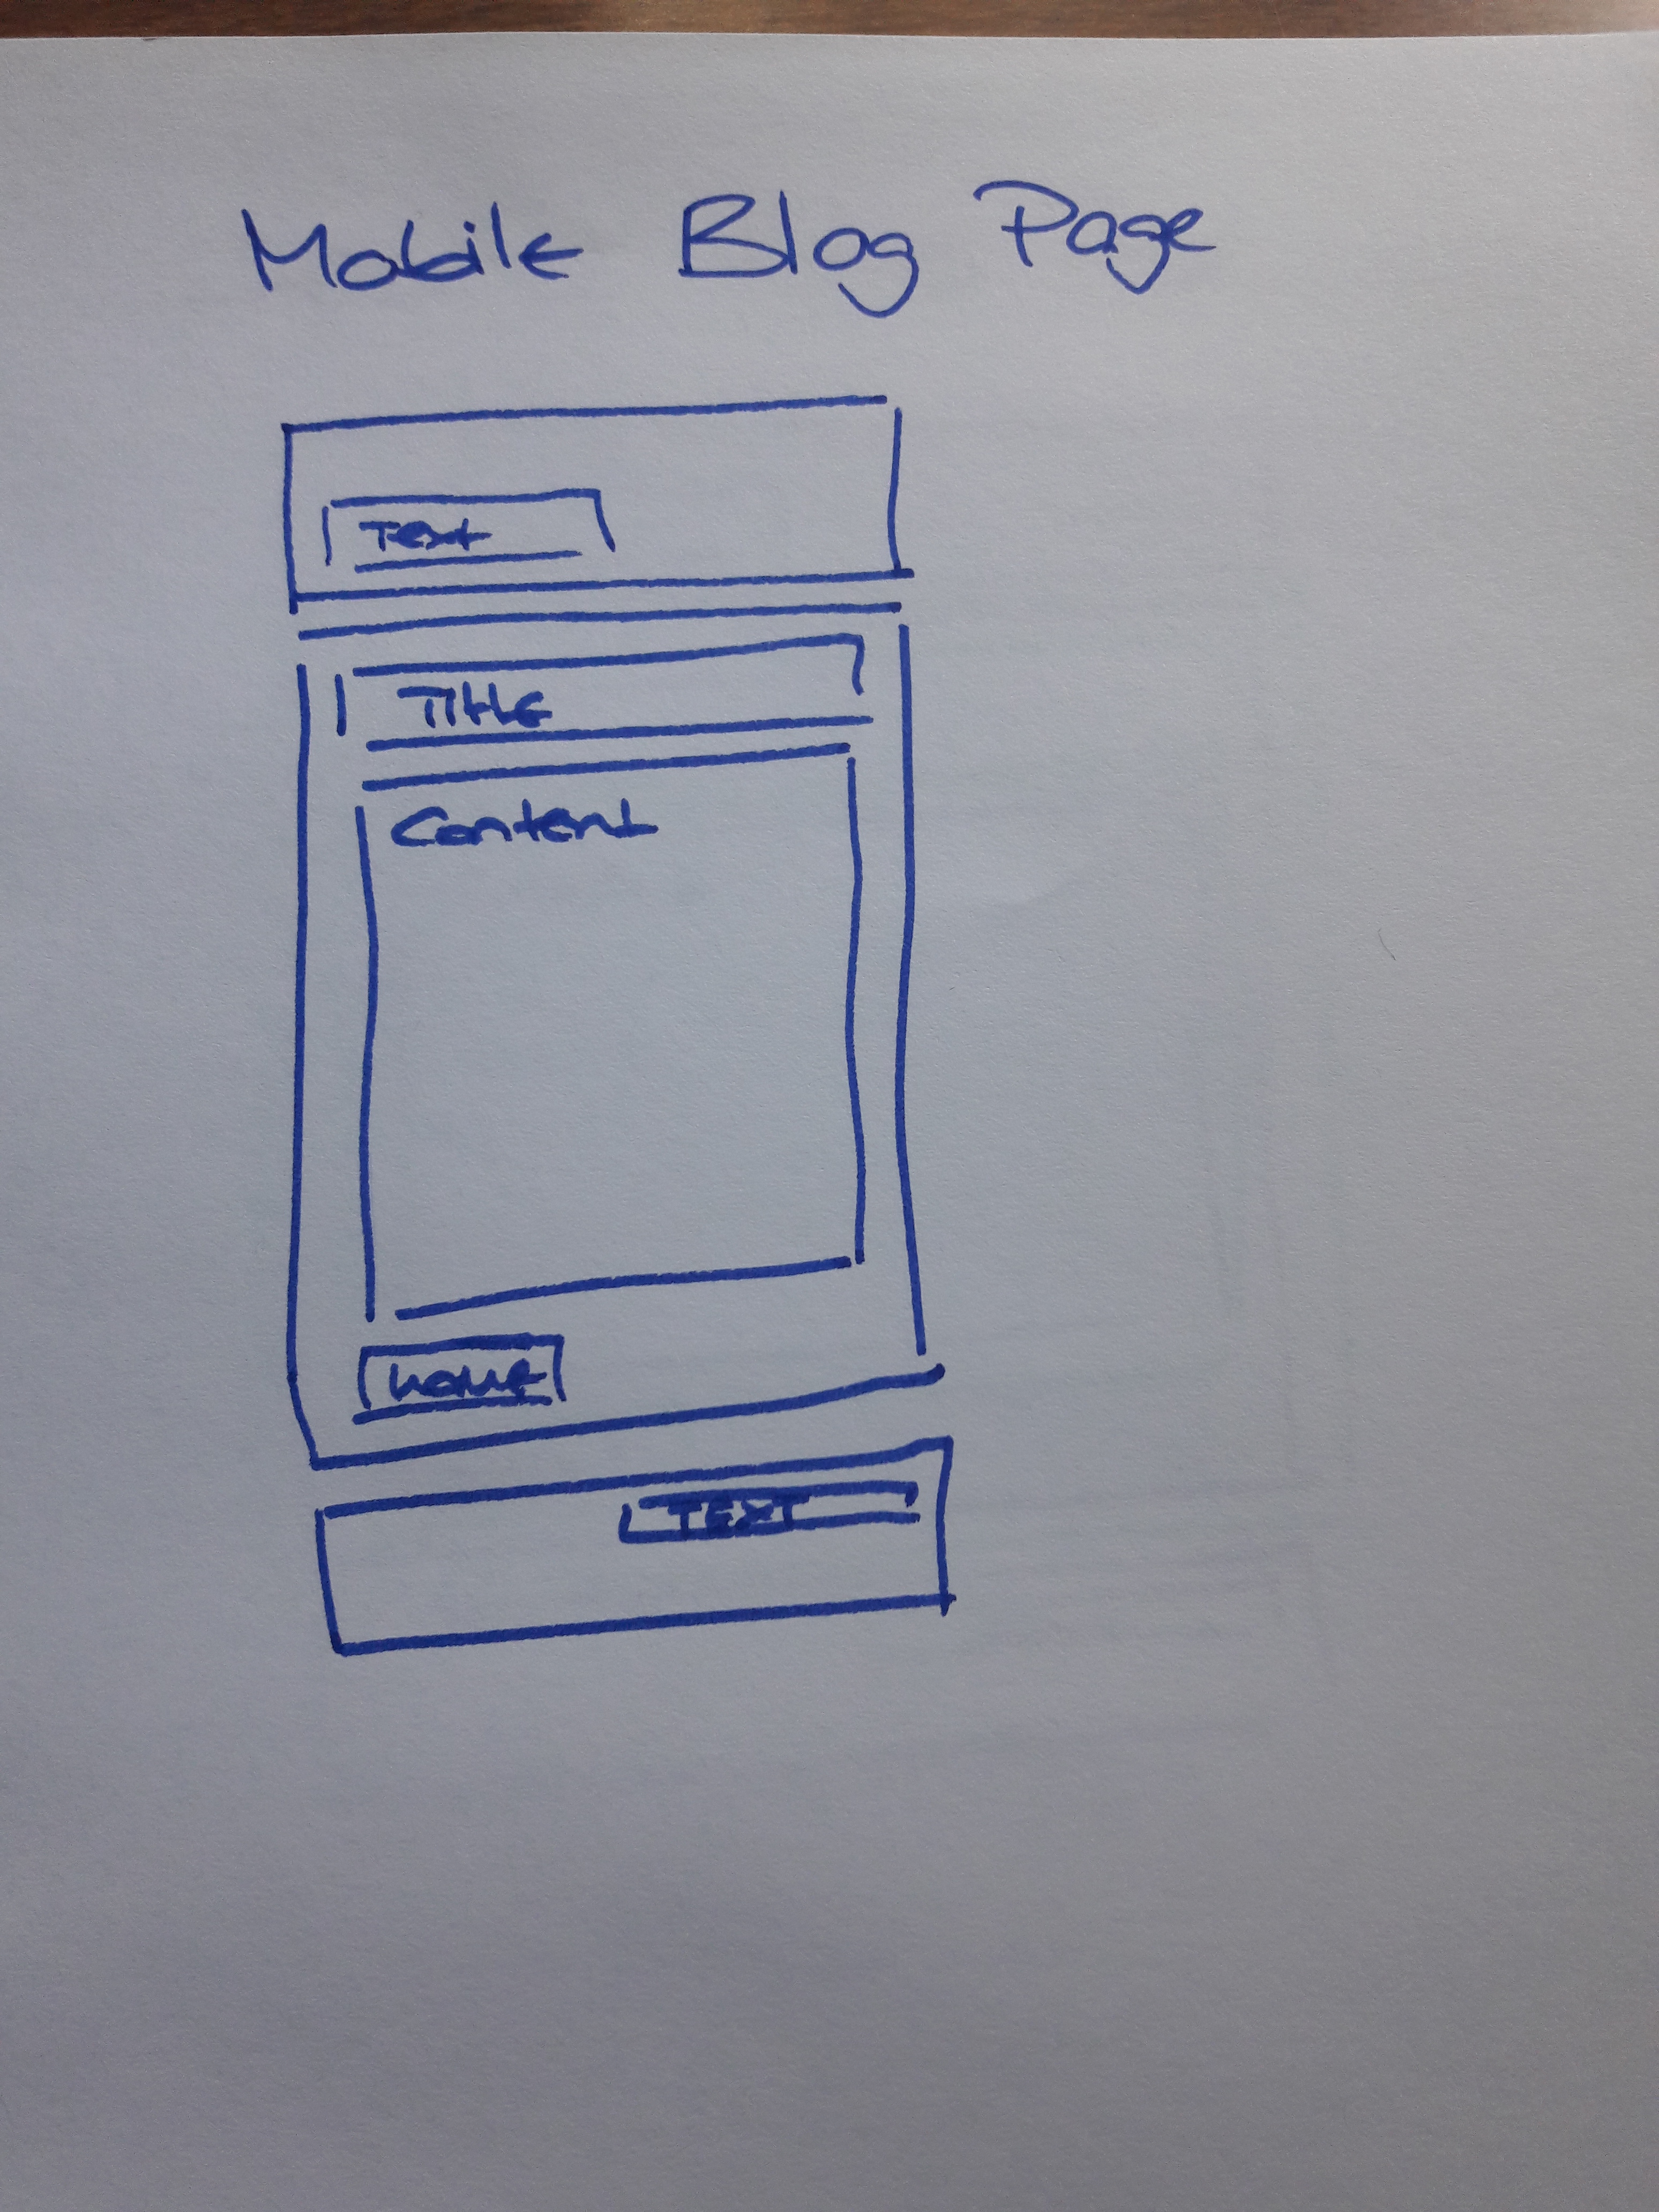 Mobile Blog Page
Text
Title
Content
Home
TEXT